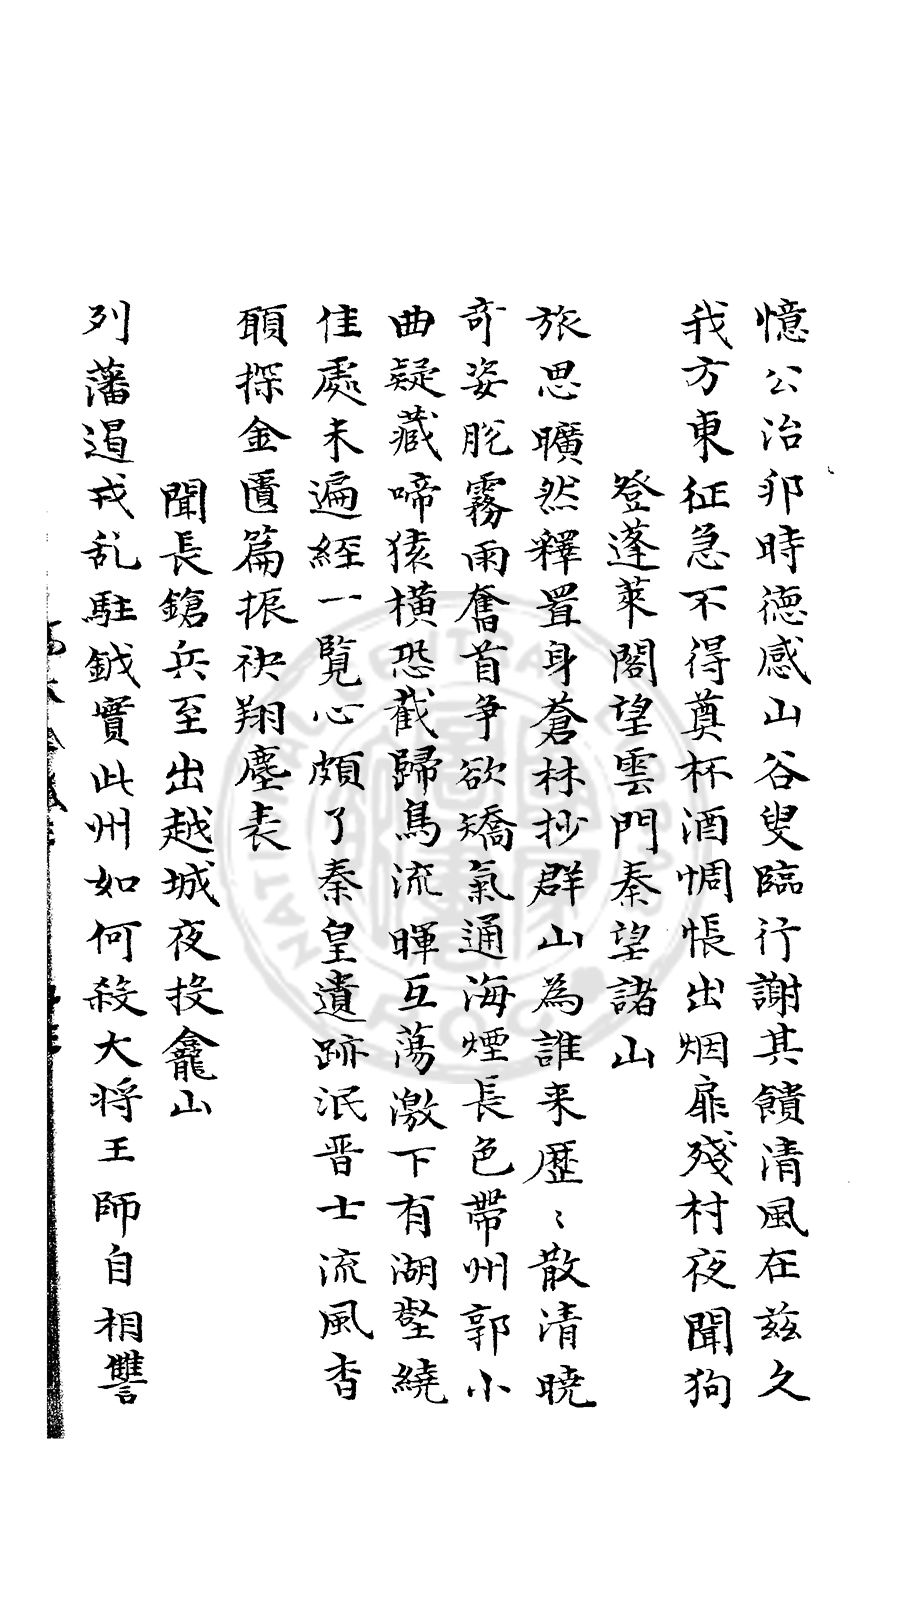 憶公治邦時德感山谷叟臨行謝其饋清風在茲久
我方東征急不得奠杯酒惆悵出烟扉殘村夜聞狗
登蓬萊閣望雲門秦望諸山
旅思曠然釋置身蒼林抄群山為誰来歷〻散清曉
奇姿脫霧雨奮首爭欲矯氣通海煙長色帶州郭小
曲疑藏啼猿橫恐截歸鳥流暉互蕩激下有湖壑繞
佳處未遍經一覽心頗了秦皇遺跡泯晋士流風杳
願探金匱篇振袂翔塵表
聞長鎗兵至出越城夜投龕山
列藩遏戎乱駐鉞實此州如何殺大将王師自相讐